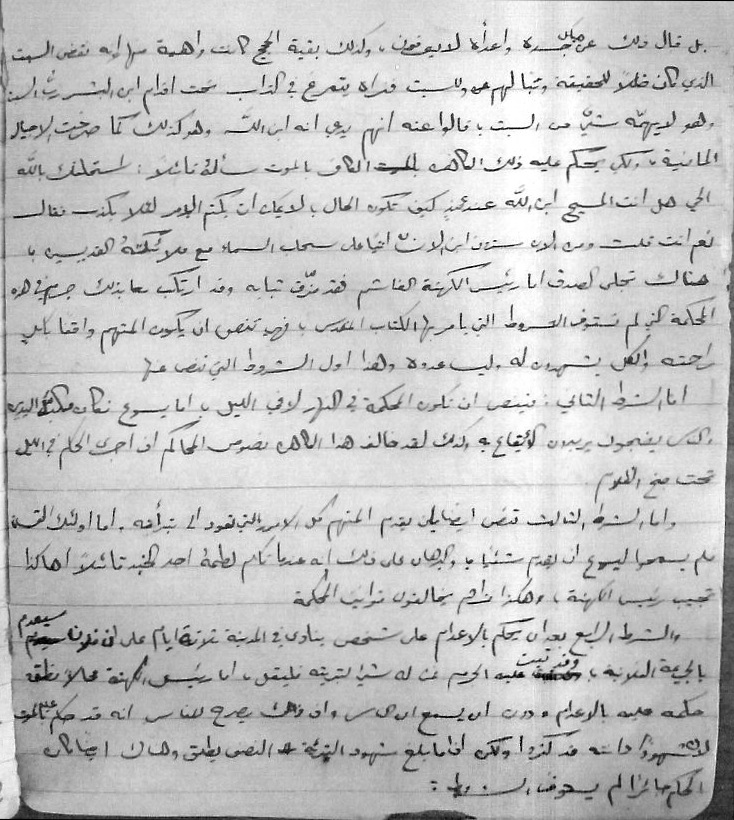 بل قال ذلك عن هيكل جسده واعداؤه لا يعرفون، وكذلك بقية الحجج كانت واهية منها انه نقض السبت
الذي كان ظلاً للحقيقة وتباً لهم وللسبت فنراه يتمرغ في التراب تحت اقدام ابن البشر رب السبت
وهو لا يهمه شيء من السبت، قالوا عنه انهم يدعي انه ابن الله وهو كذلك كما صرخت الاجيال
الماضية، ولكي يحكم عليه ذلك الكاهن بالموت سأله قائلاً: استحلفك بالله
الحي هل انت المسيح ابن الله عندئذٍ كيف تكون الحال، لا يمكن ان يكتم الامر لئلا يكذب فقال
نعم انت قلت ومن الان سترون ابن الانسان آتياً على سحاب السماء مع ملائكته القديسين،
هناك تجلى الصدق اما رئيس الكهنة الغاشم فقد مزّق ثيابه وقد ارتكب بذلك جريمة في هذه
المحكمة التي لم تستوف الشروط التي يأمر بها الكتاب المقدس، فهي تنص ان يكون المتهم واقفاً بكل
راحته والكل يشهدون له وليس عدوه وهذا اول الشروط التي تنص عنها
اما الشرط الثاني: فينص ان تكون المحكمة في النهار لا في الليل، اما يسوع فكان مكبل اليدين
والناس يضجون يريدون الايقاع به وكذلك لقد خالف هذا الكاهن نصوص المحاكم اذ اجرى الحكم في الليل
تحت جنح الظلام
واما الشرط الثالث فنص ايضاً بان يقدم المتهم كل الامور التي تعود الى تبرأته. اما اولئك القساة
فلم يسمحوا ليسوع ان يقدم شيئاً، والبرهان على ذلك انه عندما تكلم لطمه احد الجند قائلاً أهكذا
تجيب رئيس الكهنة، وهكذا نراهم يخالفون قوانين المحكمة
والشرط الرابع بعد ان يحكم بالاعدام على شخص ينادى في المدينة ثلاثة ايام على ان فلان سيعدم
بالجريمة الفلانية، وقد ثبت عليه الجرم فمن له شيئاً لتبرئته فليقل، اما رئيس الكهنة فحالاً نطق
حكمه عليه بالاعدام ودون ان يسمع الناس وان ذلك يصرح للناس انه قد حكم عليه بالموت
لان شهوداً قد كثروا ولكن اذا ما بلغ شهود التبرئة النصف يطلق وهناك ايضاً كان
الحكم جائراً لم يستوف الشروط: